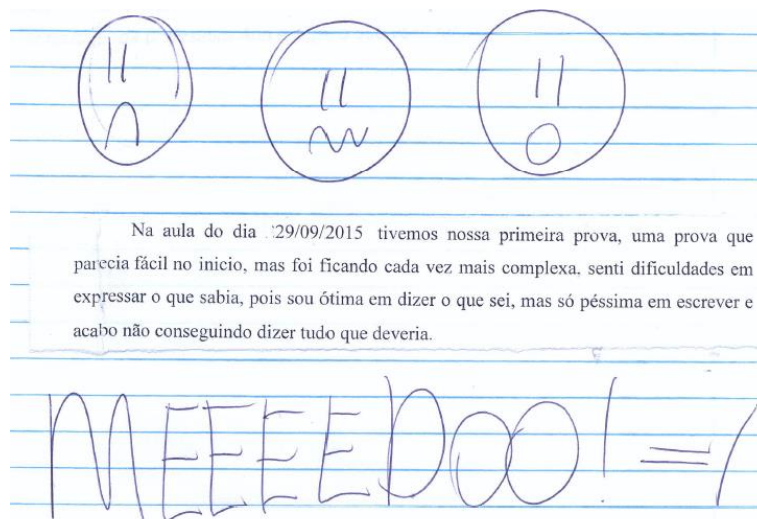 Na aula do dia 29/09/2015 tivemos nossa primeira prova, uma prova que
parecia fácil no inicio, mas foi ficando cada vez mais complexa, senti dificuldades em
expressar o que sabia, pois sou ótima em dizer o que sei, mas só péssima em escrever e
acabo não conseguindo dizer tudo que deveria.
MEEEEDOO! =/